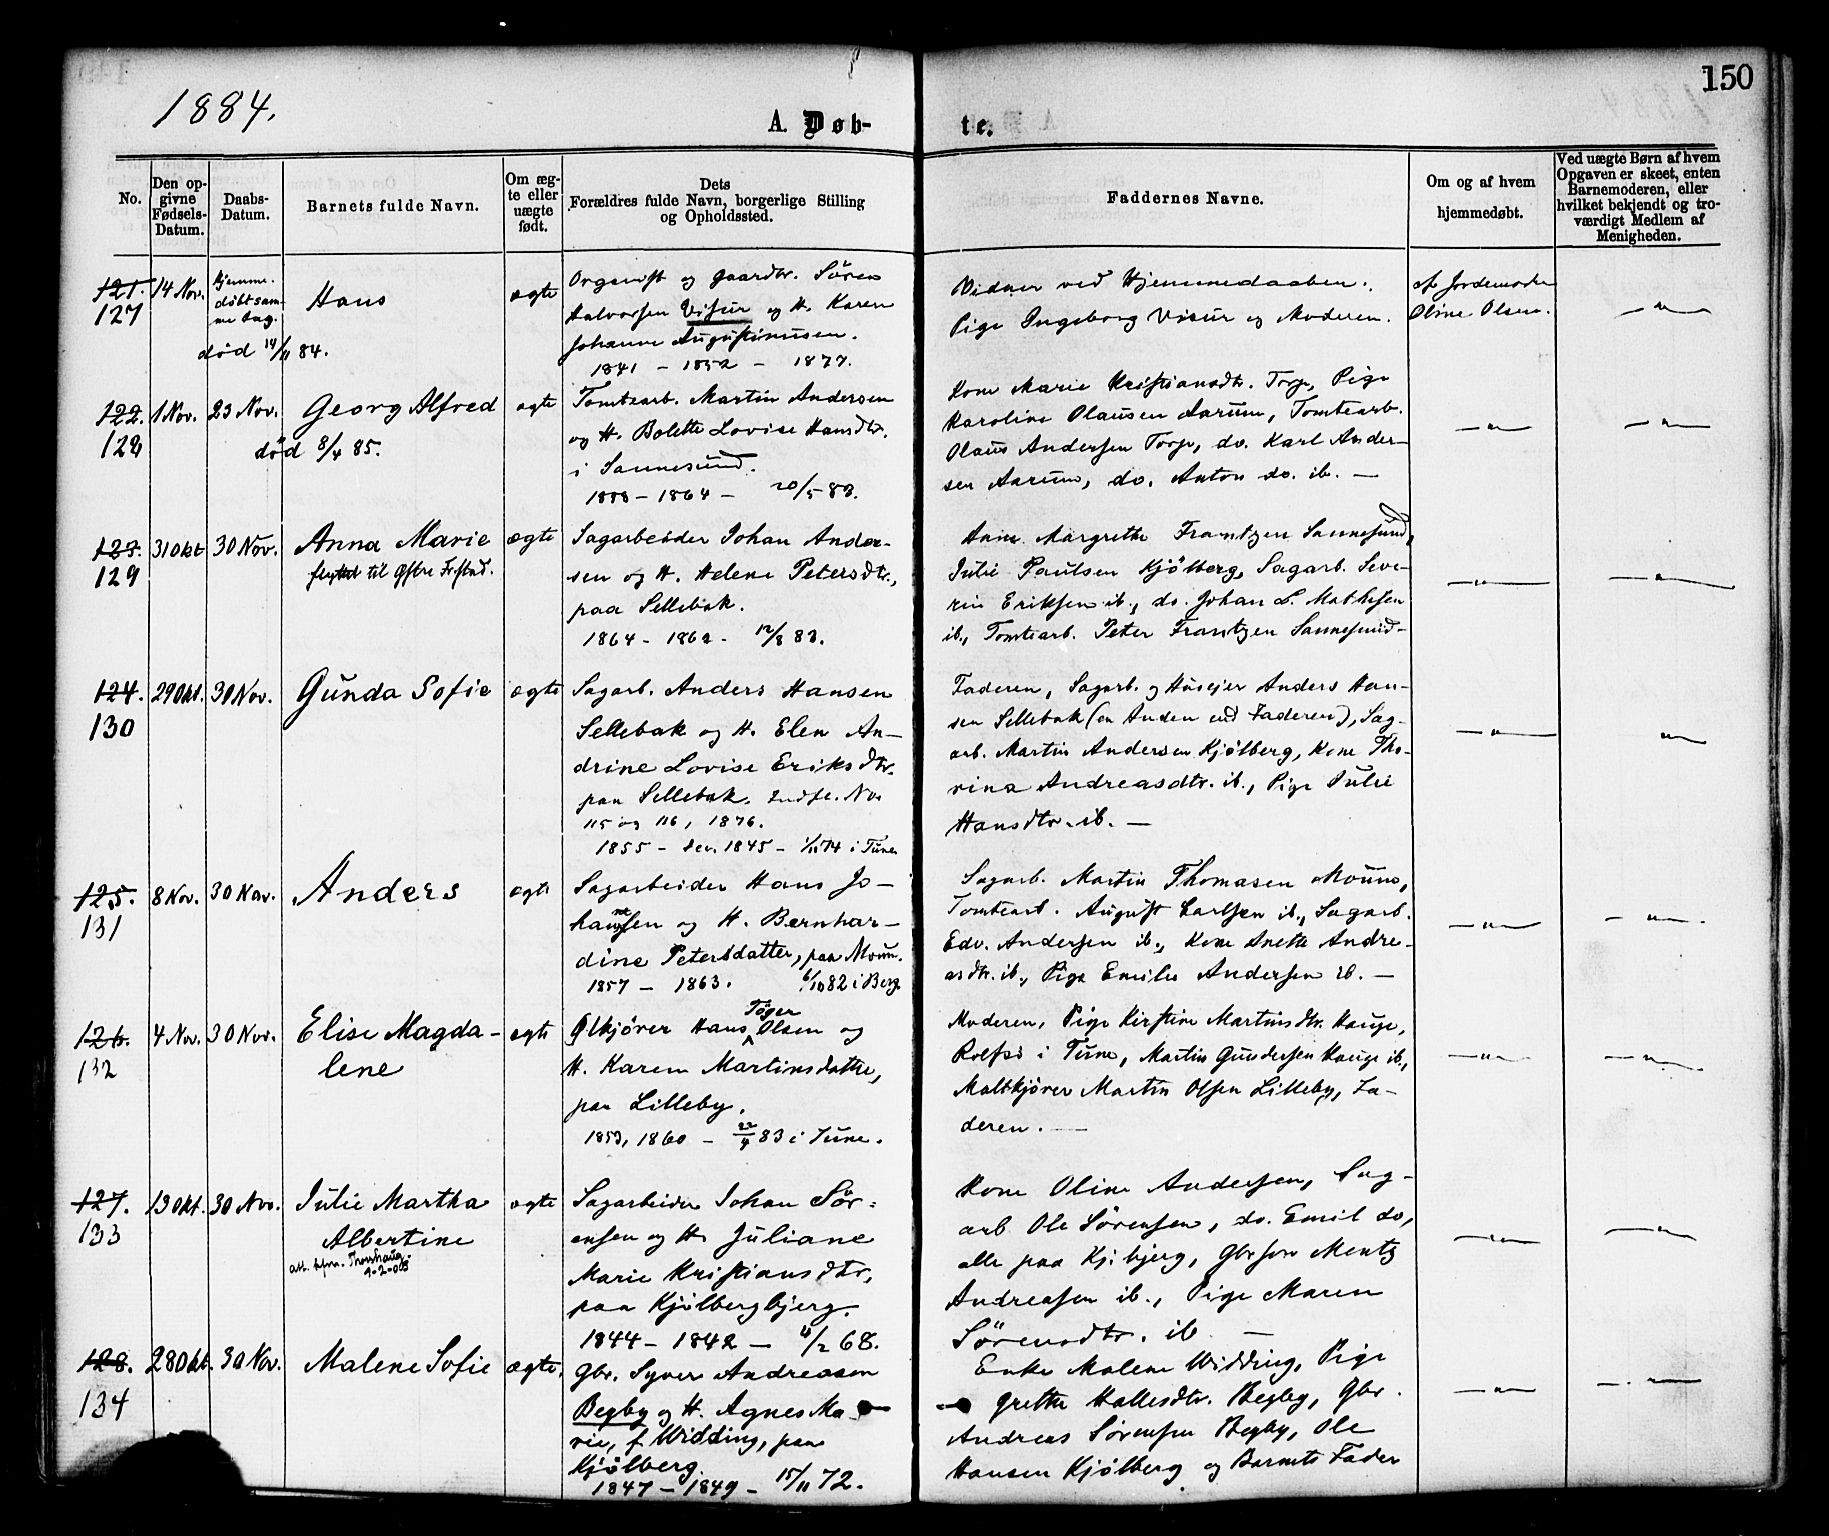 150
1884.
A. Døb-
te.
No.
Den op-
givne
Fødsels-
Datum.
Daabs-
Datum.
Barnets fulde Navn.
Om æg-
te eller
uægte
født.
Dets
Forældres fulde Navn, borgerlige Stilling
og Opholdssted.
Faddernes Navne.
Om og af hvem
hjemmedøbt.
Ved uægte Børn af hvem
Opgaven er skeet, enten
Barnemoderen, eller
hvilket bekjendt og tro-
værdigt Medlem af
Menigheden.
121.
127
14 Nov.
Hjemme-
døbt sam-
me Dag.
Hans
død 14/11 84.
ægte
Organist og Gaardbr. Sören
Halvorsen Visur og H. Karen
Johanne Augustinusen.
1841 - 1852 - 1877.
Vidner ved Hjemmedaaben:
Pige Ingeborg Visur og Moderen.
af Jordemoder
Oline Olsen.
—"—
122.
128
1 Nov.
23 Nov.
Georg Alfred
død 8/4 85.
ægte
Tomtearb. Martin Andersen
og H. Bolette Lovise Hansdtr.
i Sannesund.
1858 - 1864 - 20/5 83.
Kone Marie Kristiansdtr. Torp, Pige
Karoline Olausen Aarum, Tomtearb.
Olaus Andersen Torp, do. Karl Ander-
sen Aarum, do. Anton do. ib. —
—"—
—"—
123.
129
31 Okt
30 Nov.
Anna Marie
flyttet til Østre Frstad.
ægte
Sagarbeider Johan Ander-
sen og H. Helene Petersdtr.,
paa Sellebak.
1864 - 1862 - 12/8 83.
Anne Margrethe Frantzen Sannesund,
Julie Paulsen Kjølberg, Sagarb. Seve-
rin Eriksen ib., do. Johan L. Mathisen
ib., Tomtearb. Peter Frantzen Sannesund-
—"—
—"—
124.
130
29 Okt.
30 Nov.
Gunda Sofie
ægte
Sagarb. Anders Hansen
Sellebak og H. Elen An-
drine Lovise Eriksdtr.
paa Sellebak. Indfl. No.
115 og 116, 1876.
1855 - Dec. 1845 - 1/11 74 i Tune
Faderen, Sagarb. og Huseier Anders Han-
sen Sellebak (en Anden end Faderen), Sag-
arb. Martin Andersen Kjølberg, Kone Tho-
rina Andreasdtr. ib., Pige Julie
Hansdtr. ib. —
—"—
—"—
125.
131
8 Nov.
30 Nov.
Anders
ægte
Sagarbeider Hans Jo-
hannesen og H. Bernhar-
dine Petersdatter, paa Moum.
1857 - 1863. 6/10 82 i Berg
Sagarb. Martin Thomasen Moum,
Tomtearb. August Carlsen ib., Sagarb.
Edv. Andersen ib., Kone Anette Andre-
asdtr. ib., Pige Emilie Andersen ib. —
—"—
—"—
126.
132
4 Nov.
30 Nov.
Elise Magda-
lene
ægte
Ølkjører Hans Töger Olsen og
H. Karen Martinsdatter,
paa Lilleby.
1853, 1860 - 22/9 83 i Tune.
Moderen, Pige Kirstine Martinsdtr. Hauge,
Rolfsö i Tune, Martin Gundersen Hauge ib.,
Maltkjører Martin Olsen Lilleby, Fa-
deren. —
—"—
—"—
127.
133
13 Okt.
30 Nov.
Julie Martha
Albertine
4-2-08
ægte
Sagarbeider Johan Sör-
ensen og H. Juliane
Marie Kristiansdtr.
paa Kjølbergbjerg.
1844 - 1842 - 4/2 68.
Kone Oline Andersen, Sag-
arb. Ole Sørensen, do. Emil do,
alle paa Kj.bjerg, Gbrsøn Mentz
Andreasen ib., Pige Maren
Sörensdtr. ib —
—"—
—"—
128.
134
28 Okt.
30 Nov.
Malene Sofie
ægte.
Gbr. Syver Andreasen
Begby og H. Agnes Ma-
rie, f. Widding, paa
Kjølberg.
1847 - 1849 - 15/11 72.
Enke Malene Widding, Pige
Grethe Hallesdtr. Begby, Gbr.
Andreas Sørensen Begby, Ole
Hansen Kjølberg og Barnets Fader
—"—
—"—